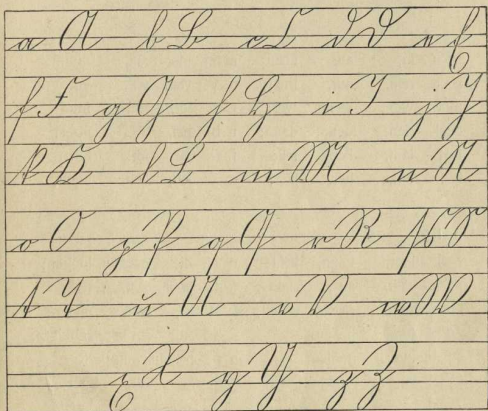 a A b B c C d D e E
f F g G h H i I j J
k K l L m M n N
o O p P q Q r R ſ s S
t T u U v V w W
x X y Y z Z